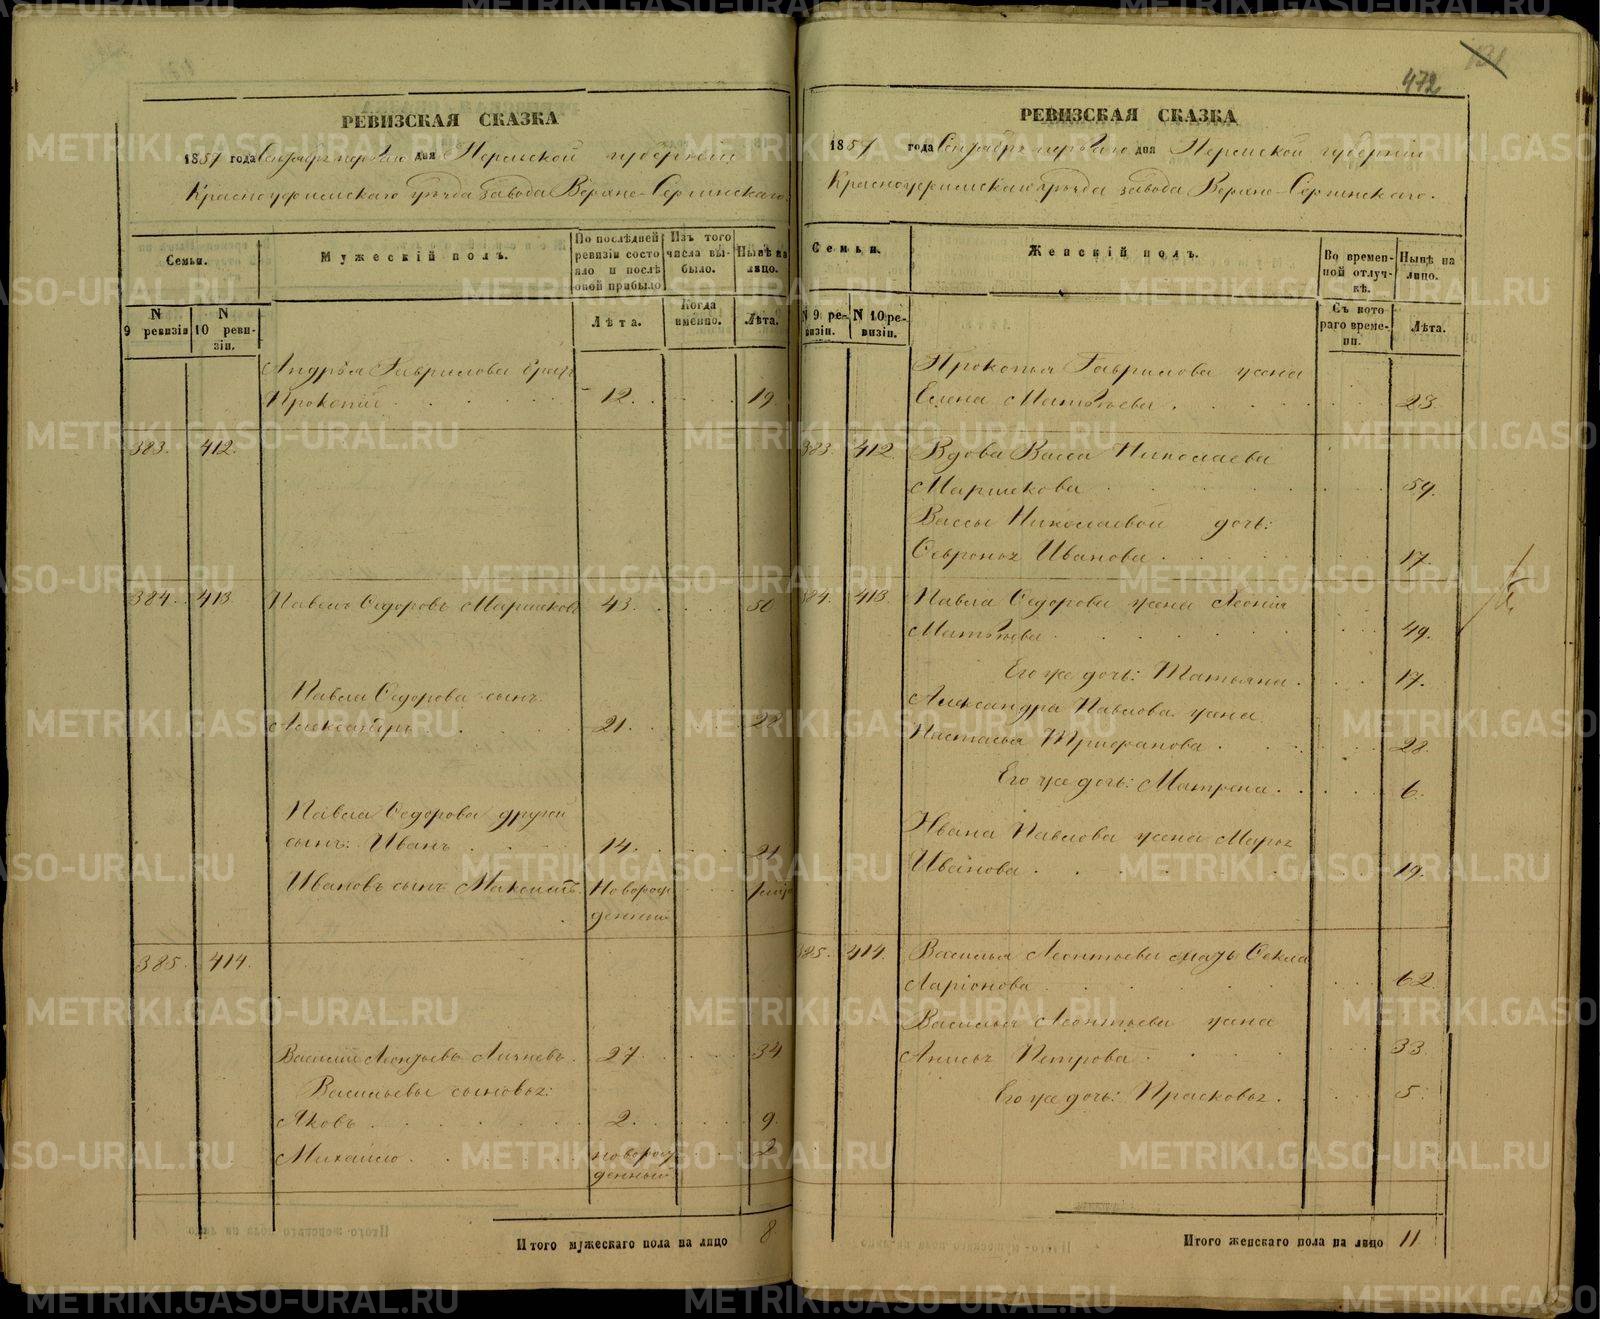 РЕВИЗСКАЯ СКАЗКА
1857 года Сентября первого дня Пермской губернии
Красноуфимскаго уѣзда завода Верхне-Сергинскаго.
Семьи.
Мужескій полъ.
По послѣдней ревизіи состояло и послѣ оной прибыло
Изъ того числа выбыло.
Нынѣ на лицо.
N 9 ревизіи
N 10 ревизіи.
Лѣта.
Когда именно.
Лѣта.
Андрѣя Гаврилова братъ
Прокопій 12. 19.
383. 412.
384. 413. Павелъ Ѳедоровъ Маршековъ 43. 50
Павла Ѳедорова сынъ
Александръ 21. 28
Павла Ѳедорова другой
сынъ: Иванъ 14. 21
Ивановъ сынъ Максимъ Новорож
денный
385. 414.
Василій Леонтьевъ 27. 34
Васильевы сыновья:
Яковъ 2. 9.
Михайло новорож 2
денный
Итого мужескаго пола на лицо 8
472
131
РЕВИЗСКАЯ СКАЗКА
1857 года Сентября первого дня Пермской губерніи
Красноуфимскаго уѣзда завода Верхне-Сергинскаго.
Семьи.
Женскій полъ.
Во временной отлучкѣ.
Нынѣ на лицо.
N 9 ревизіи.
N 10 ревизіи.
Съ котораго времени.
Лѣта.
Прокопья Гаврилова жена
Елена Матвѣева 23.
383. 412 Вдова Васса Николаева
Маршекова 59.
Вассы Николаевой дочь:
Ѳевронья Иванова 17.
384. 413. Павла Ѳедорова жена
Матвѣева 49.
Его же дочь: Татьяна 17.
Александра Павлова жена
Настасья Трифанова 28.
Его же дочь: Матрена 6.
Ивана Павлова жена Марья
Иванова 19.
385. 414. Василья Леонтьева мать Ѳекла
Ларіонова 62.
Василья Леонтьева жена
Анисья Петрова 33.
Его же дочь: Прасковья 5.
Итого женскаго пола на лицо 11
METRIKI.GASO-URAL.RU